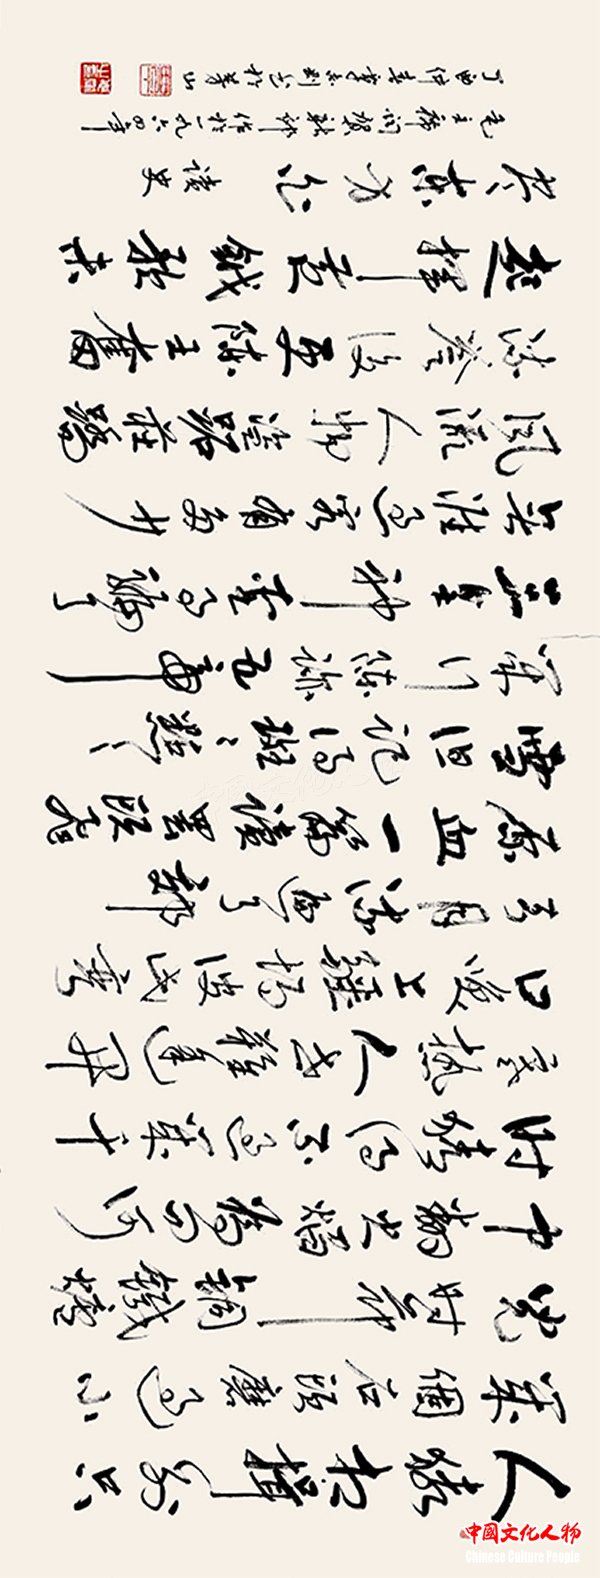 人猿相揖别只
几個石頭磨过小
兒时节銅鐵爐
中翻火焰為问何
时猜得不过几千
寒热人世難逢开
口笑上疆场彼此弯
弓月流遍了郊
原血一篇读罢头飛
雪但记得斑斑點點
几行陈迹五帝
三皇神圣事骗了
无涯过客有多少
风流人物盗跖莊蹻
流誉後更陈王奮
起揮黄钺歌未
竟东方白 读史
毛主席词贺新郎 作於一九六四年
丁酉仲春 於茅山
中國文化人物
Chinese Culture People